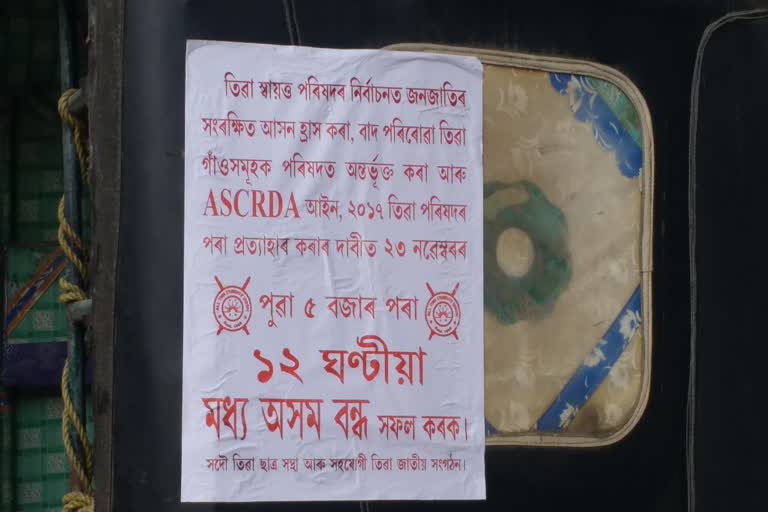 তিৱা স্বায়ত্ত পৰিষদৰ নিৰ্বাচনত জনজাতিৰ
সংৰক্ষিত আসন হ্ৰাস কৰা, বাদ পৰিবোৱা তিৱা
গাঁওসমূহক পৰিষদত অন্তৰ্ভূক্ত কৰা আৰু
ASCRDA আইন, ২০১৭ তিৱা পৰিষদৰ
পৰা প্ৰত্যাহাৰ কৰাৰ দাবীত ২৩ নৱেম্বৰৰ
পুৱা ৫ বজাৰ পৰা
১২ ঘণ্টীয়া
মধ্য অসম বন্ধ সফল কৰক।
সদৌ তিৱা ছাত্ৰ সন্থা আৰু সহযোগী তিৱা জাতীয় সংগঠন।